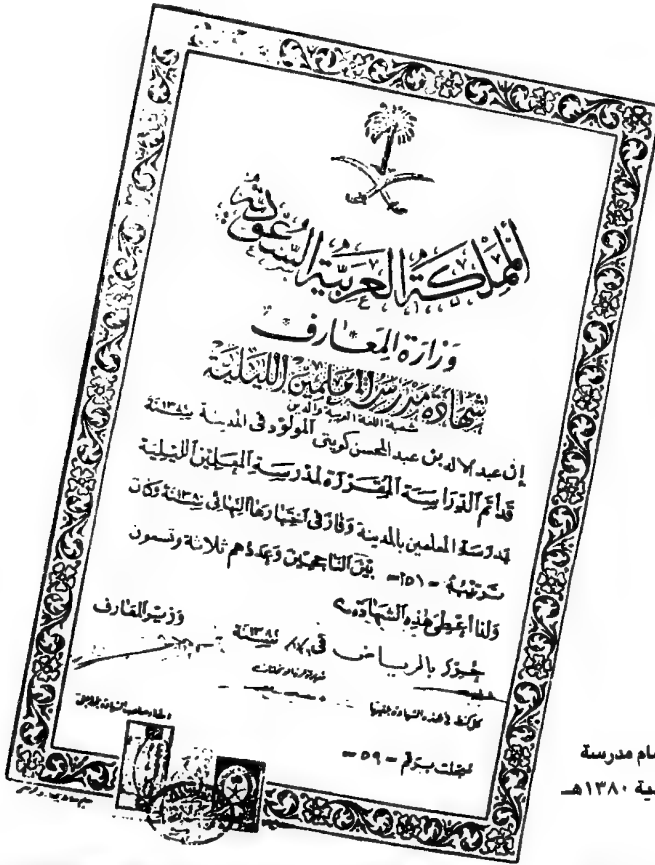 المملكة العربية السعودية
وزارة المعارف
شهادة مدرسة المعلمين الليلية
شعبة اللغة العربية والدين
إن عبد الاله بن عبد المحسن المولود في المدينة سنة
قد أتم الدراسة المقررة لمدرسة المعلمين الليلية
بمدرسة المعلمين بالمدينة وفاز في اختبارها النهائي سنة ١٣٨٠ وكان
ترتيبه بين الناجحين وعددهم ثلاثة وتسعون
ولذا أعطي هذه الشهادة
حرر بالرياض في سنة
وزير المعارف
كل كشط في هذه الشهادة يلغيها
سجلت برقم - ٥٩ -
ام مدرسة
ية ١٣٨٠هـ